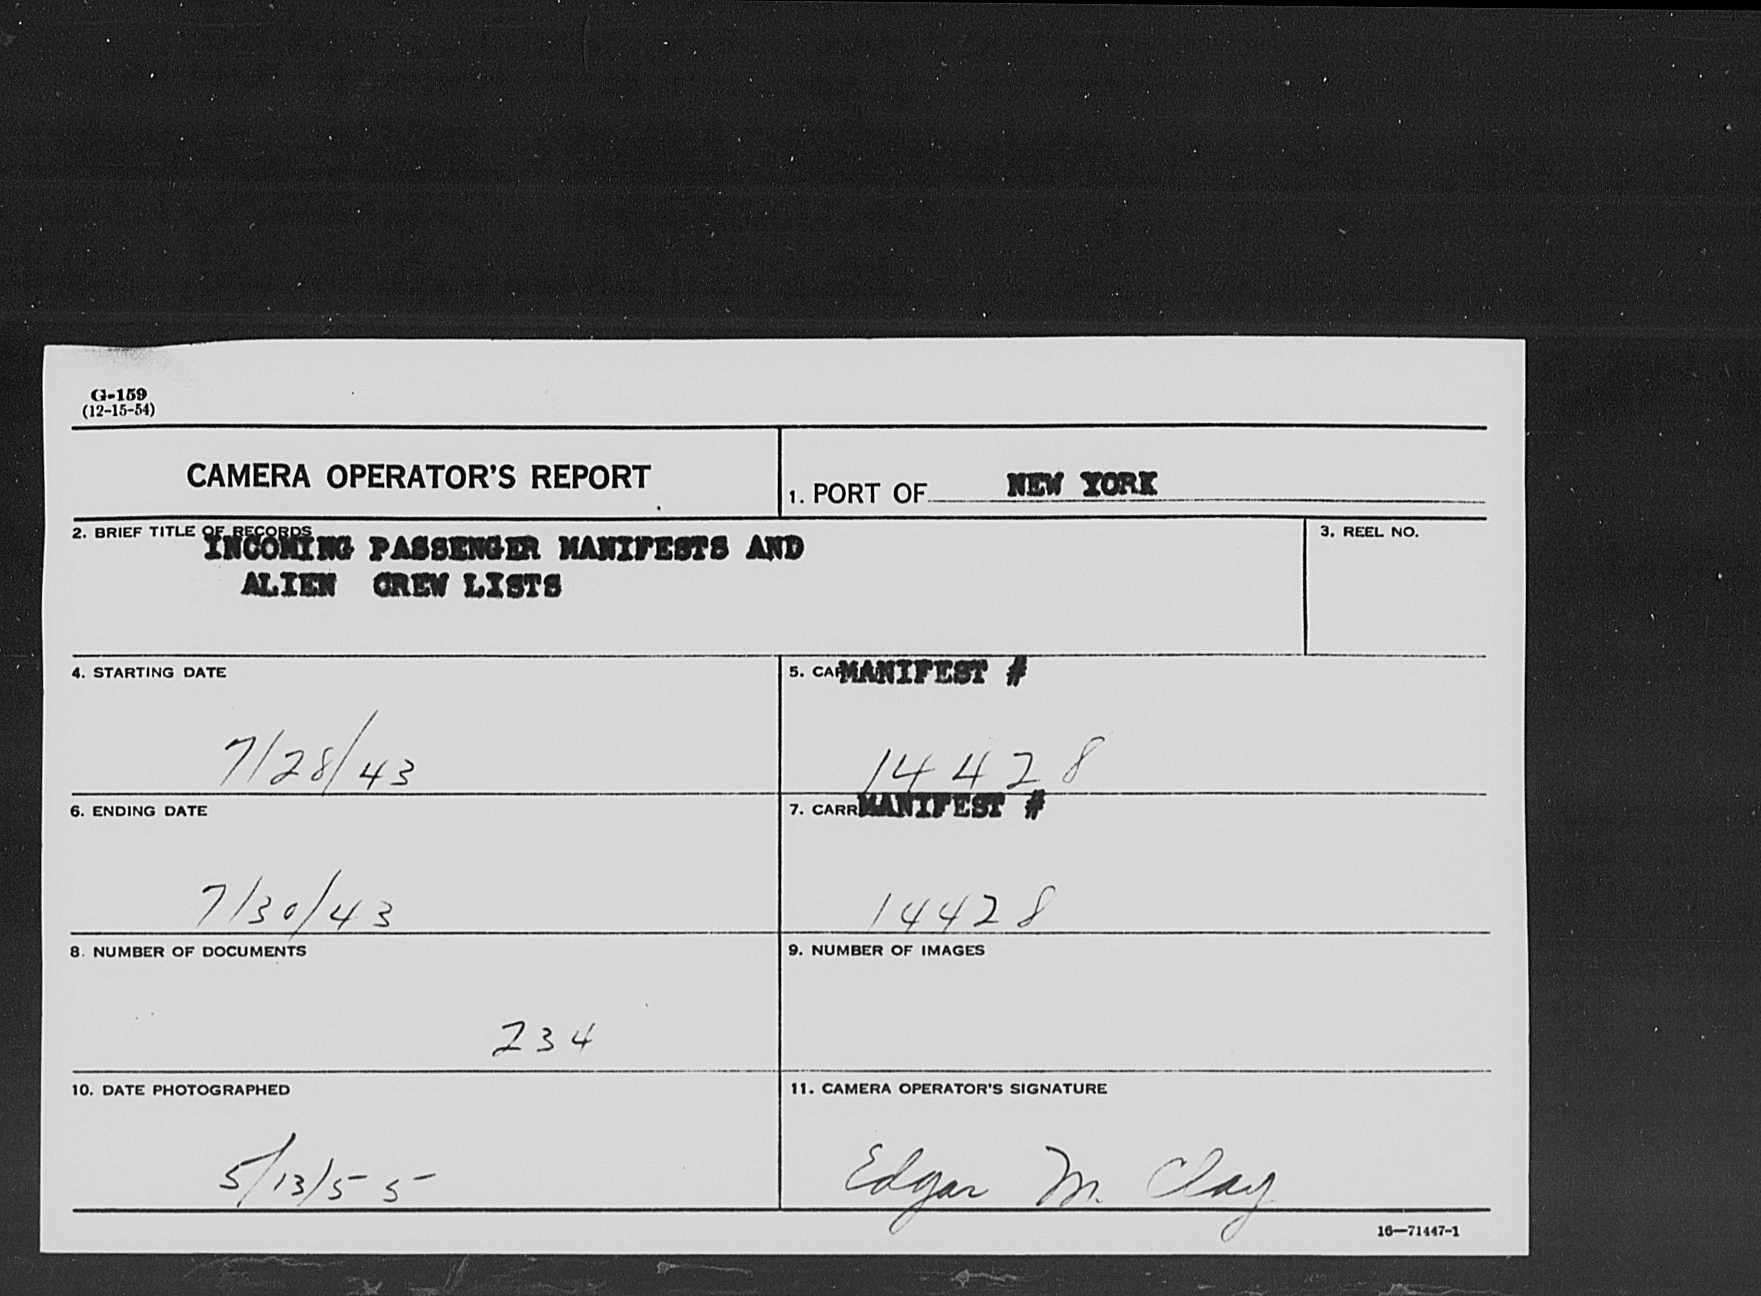 G-159
(12-15-54)
CAMERA OPERATOR'S REPORT
1. PORT OF NEW YORK
2. BRIEF TITLE OF RECORDS
INCOMING PASSENGER MANIFESTS AND
ALIEN CREW LISTS
3. REEL NO.
4. STARTING DATE
7/28/43
5. MANIFEST #
14428
6. ENDING DATE
7/30/43
7. MANIFEST #
14428
8. NUMBER OF DOCUMENTS
234
9. NUMBER OF IMAGES
10. DATE PHOTOGRAPHED
5/13/55
11. CAMERA OPERATOR'S SIGNATURE
Edgar M. Clay
16—71447-1